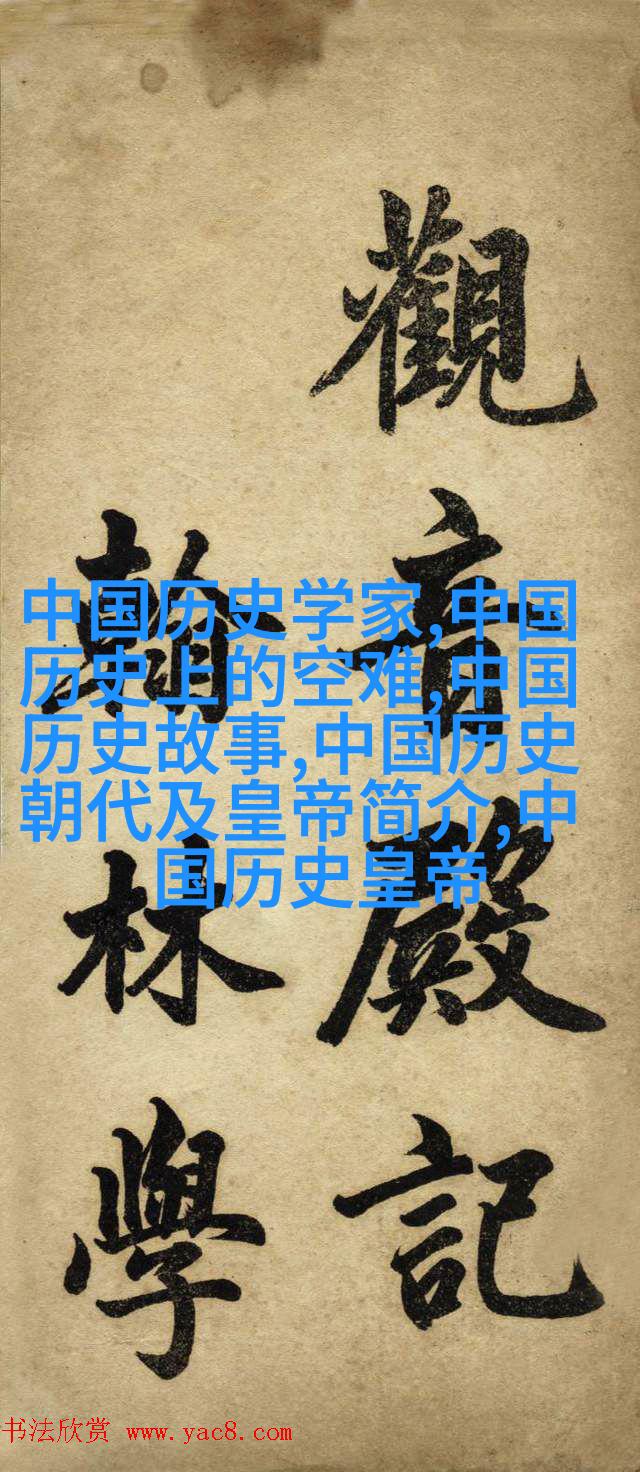 觀音殿記
翰林學
中国历史学家,中国
历史上的空难,中国
历史故事,中国历史
朝代及皇帝简介,中
国历史皇帝
书法欣赏 www.yac8.com